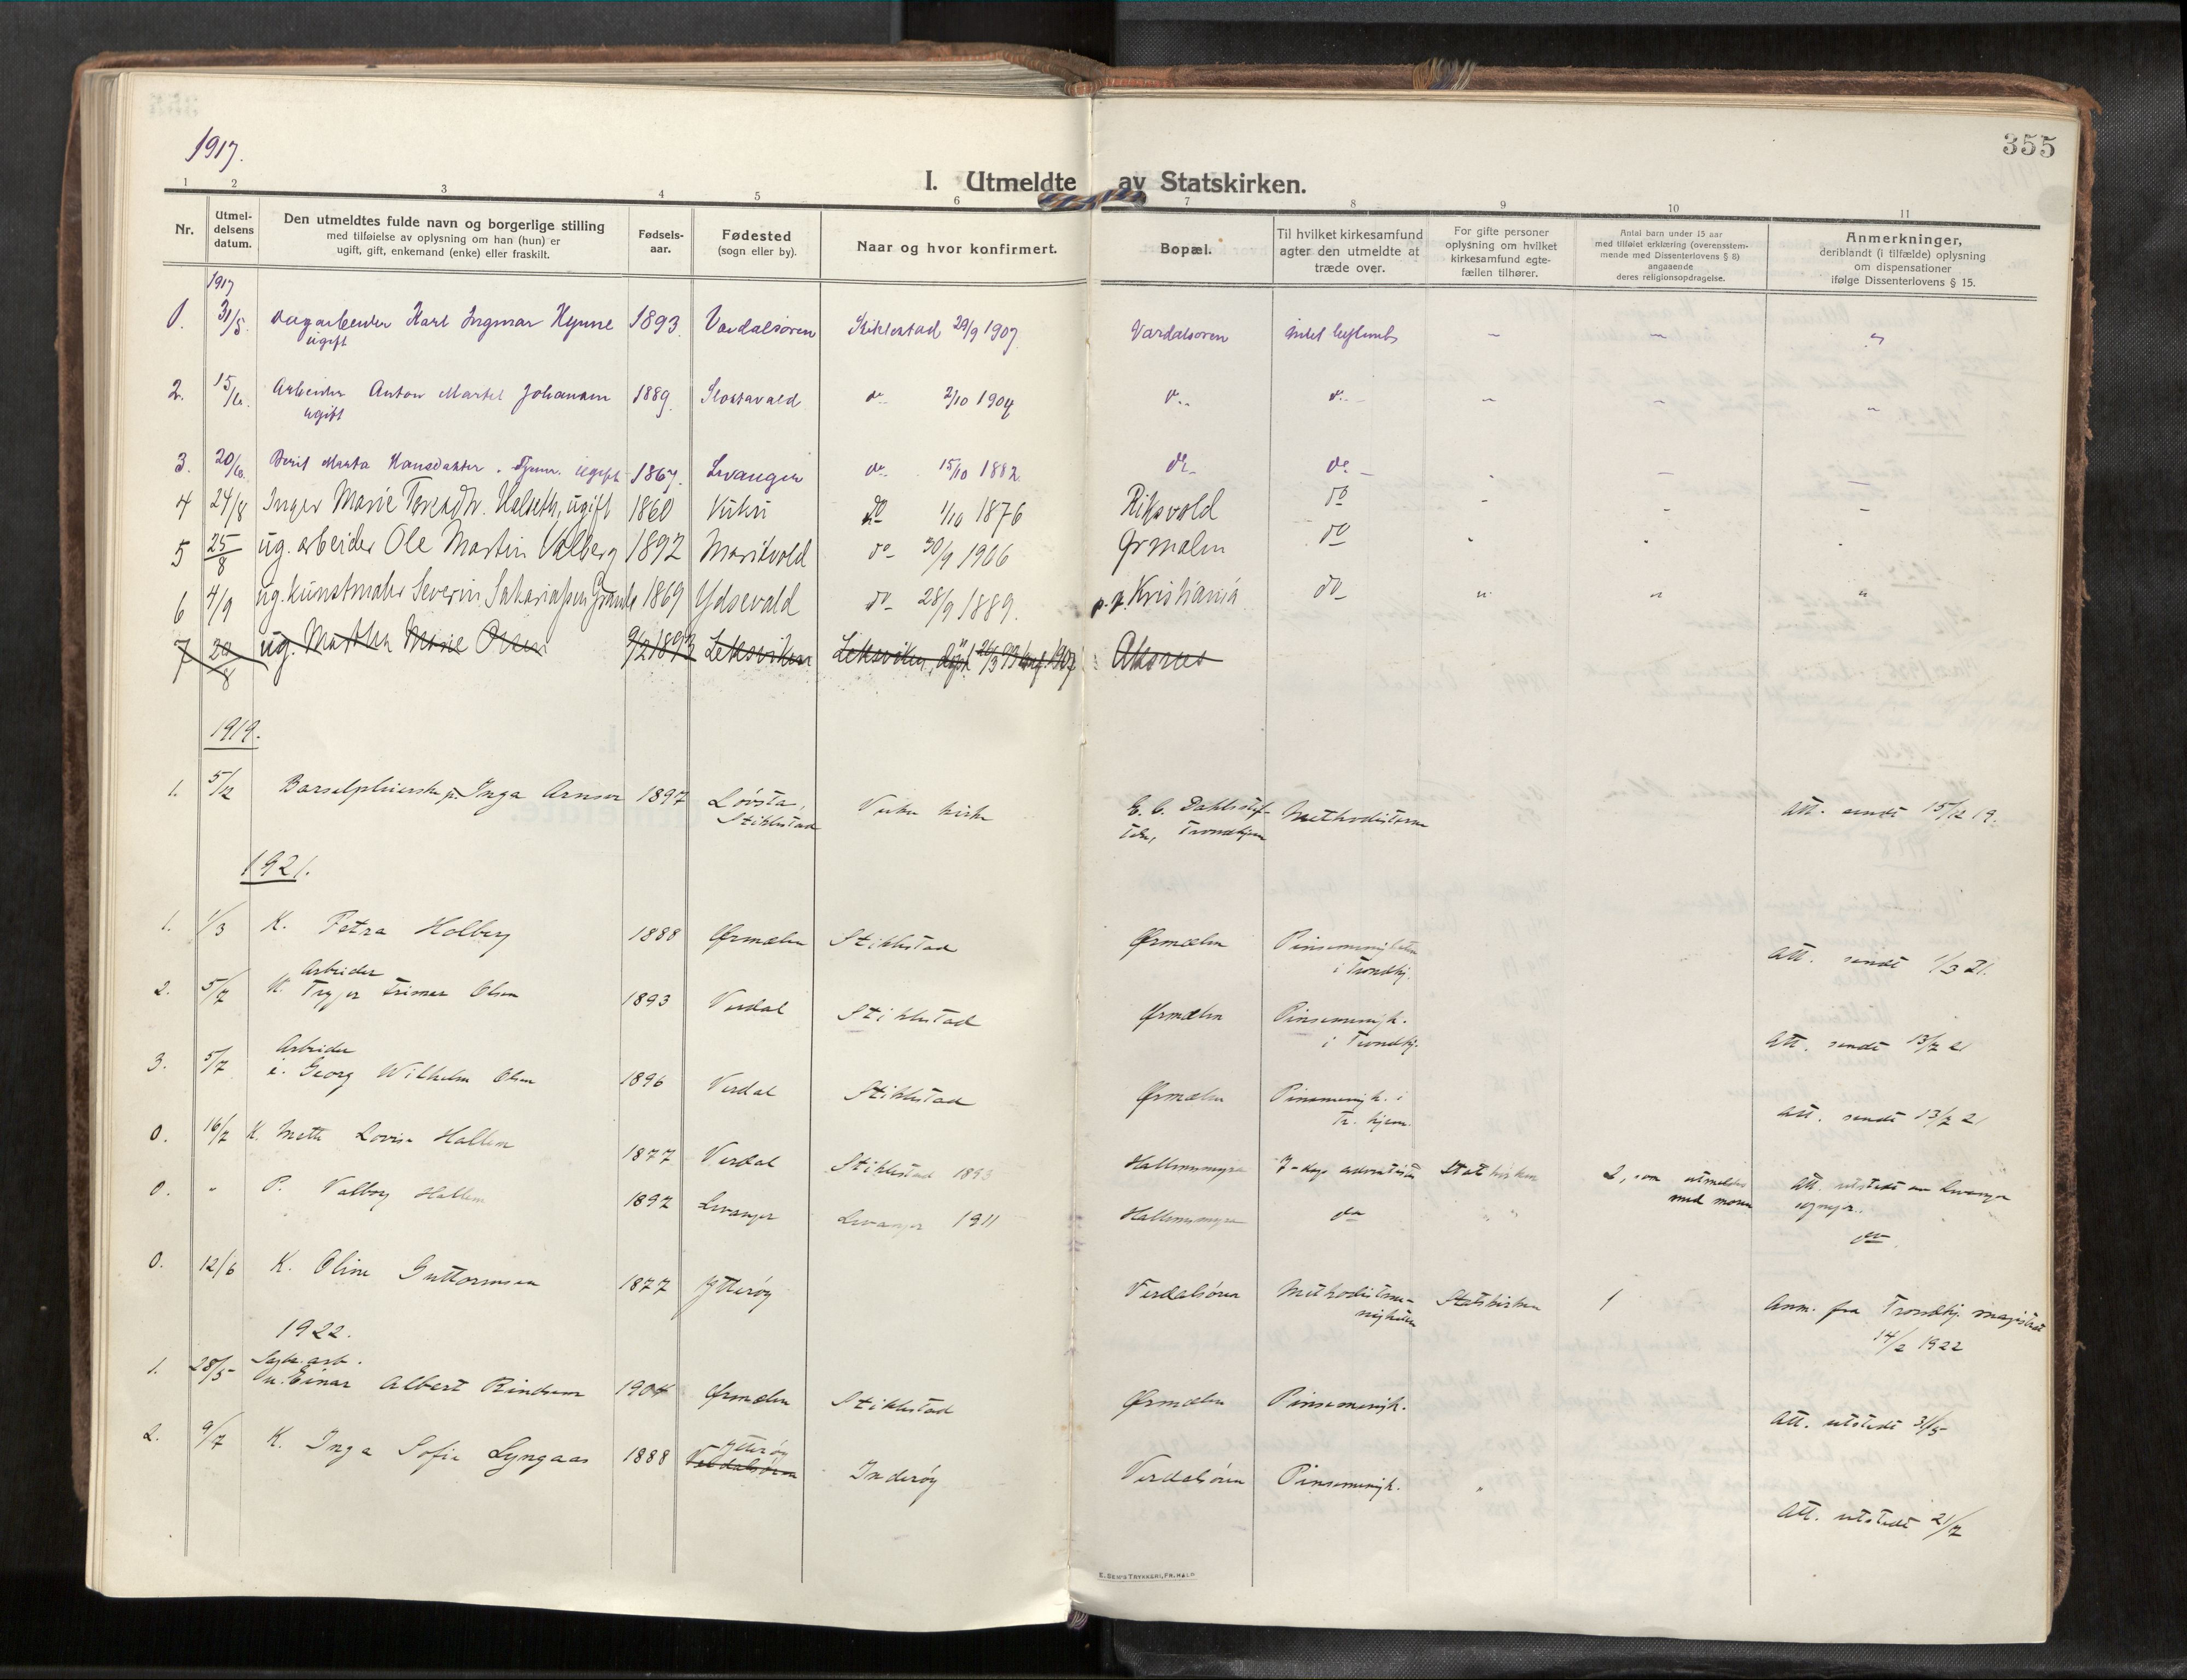 355
1917.
I. Utmeldte av Statskirken.
1 2 3 4 5 6 7 8 9 10 11
Nr.
Utmel-
delsens
datum.
Den utmeldtes fulde navn og borgerlige stilling
med tilføielse av oplysning om han (hun) er
ugift, gift, enkemand (enke) eller fraskilt.
Fødsels-
aar.
Fødested
(sogn eller by).
Naar og hvor konfirmert.
Bopæl.
Til hvilket kirkesamfund
agter den utmeldte at
træde over.
For gifte personer
oplysning om hvilket
kirkesamfund egte-
fællen tilhører.
Antal barn under 15 aar
med tilføiet erklæring (overensstem-
mende med Dissenterlovens § 8)
angaaende
deres religionsopdragelse.
Anmerkninger,
deriblandt (i tilfælde) oplysning
om dispensationer
ifølge Dissenterlovens § 15.
1917
1. 31/5 Karl Ingmar Hynne 1893 Værdalsøren Stiklestad 29/9 1907 Værdalsøren intet – – "
ugift
2. 15/6. Arbeider Anton Martel Johansen 1889. do. 2/10 1904 do. do. – – "
ugift
3. 20/6. Berit Marta Hansdatter. ugift 1867. Levanger do. 15/10 1882 do. do. – – –
4 24/8 Inger Marie Halseth, ugift 1860 do 1/10 1876 do – – –
5 25/8 ug. arbeider Ole Martin Valberg 1892 Maritvold do 30/9 1906 Ørmelen do
6 4/9 ug. kunstmaler Severin 1869 Ydsevald do 28/9 1889. Kristiania do " " "
7 20/8 ug. Marie Leksviken Leksviken
1919.
1. 5/12 Inga Arnsen 1897 Løvsta, kirke E. C. Dahls stif- Methodisterne Att. sendt 15/12 19.
Stiklestad telse, Trondhjem
1921.
1. 1/3 K. Petra Holberg 1888 Ørmelen Stiklestad Ørmelen Pinsemenigheten Att. sendt 1/3 21.
i Trondhj.
Arbeider
2. 5/7 Olsen 1893 Verdal Stiklestad Ørmelen Pinsemenigh. Att. sendt 13/7 21
i Trondhj.
Arbeider
3. 5/7 Georg Wilhelm Olsen 1896 Verdal Stiklestad Ørmelen Pinsemenigh. i Att. sendt 13/7 21
Tr. hjem.
0. 16/7 K. Mette Lovise Hallem 1877 Verdal Stiklestad 1893 Hallemsmyra 7-dags adventister Statskirken 2, som utmeldes Att. utstedt av Levanger
med moren sognepr.
0. " P. Valborg Hallem 1897 Levanger Levanger 1911 Hallemsmyra do " " do.
0. 12/6 K. Oline Guttormsen 1877 Ytterøy Verdalsøren Methodistme- Statskirken 1 Anm. fra Trondhj. magistrat
nigheten 14/2 1922
1922.
1. 28/5 Einar Albert Rindsem 1904 Ørmelen Stiklestad Ørmelen Pinsemenigh. Att. utstedt 31/5
2. 9/7 K. Inga Sofie Lyngaas 1888 Ytterøy Verdalsøren Inderøy Verdalsøren Pinsemenigh. " Att. utstedt 21/7
E. SEM'S TRYKKERI, FR.HALD